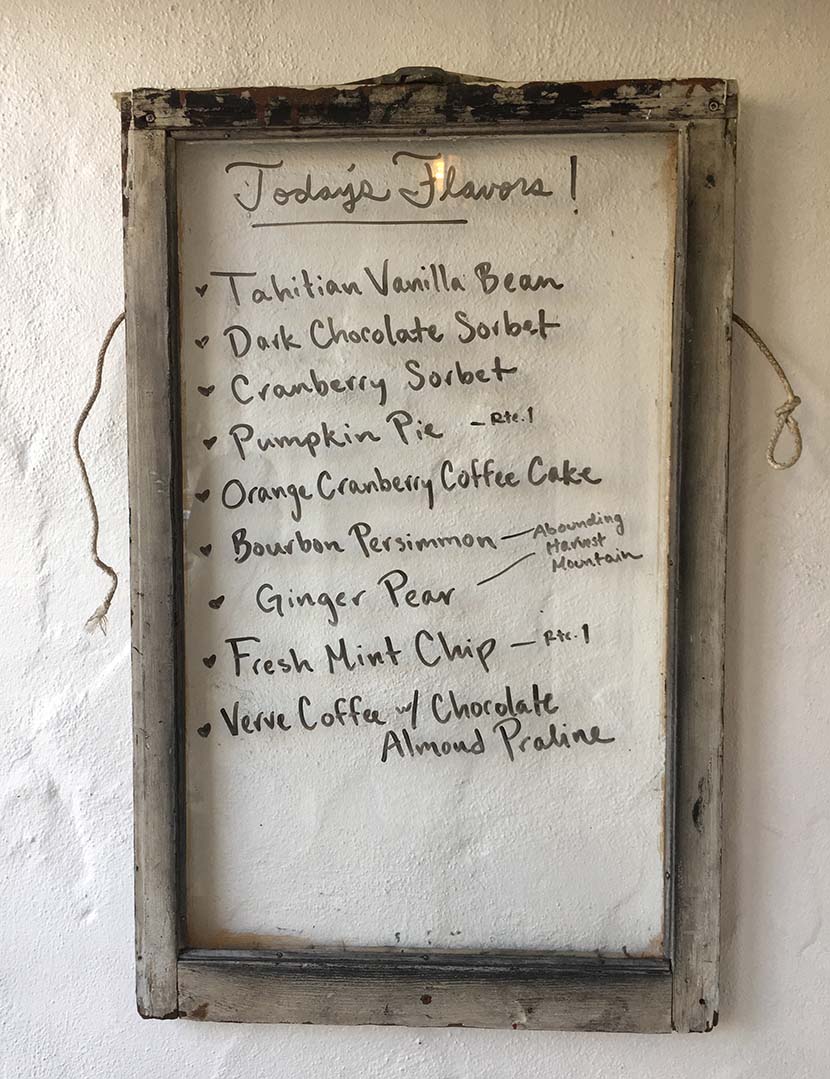 Today's Flavors!
Tahitian Vanilla Bean
Dark Chocolate Sorbet
Cranberry Sorbet
Pumpkin Pie - Rte. 1
Orange Cranberry Coffee Cake
Bourbon Persimmon - Abounding
Harvest
Mountain
Ginger Pear
Fresh Mint Chip - Rte. 1
Verve Coffee w/ Chocolate
Almond Praline